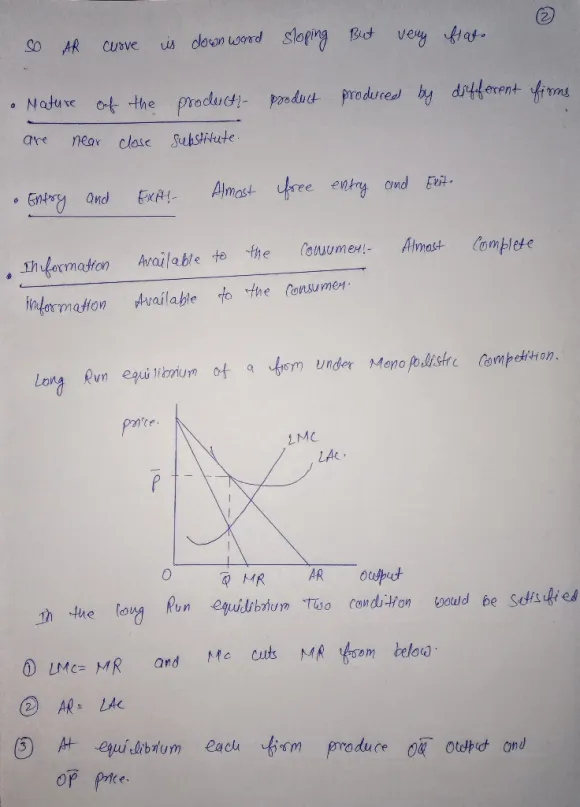 ②
SO AR curve is downword sloping But very flat.
• Nature of the product:- product produced by different firms
are near close substitute.
• Entry and Exit:- Almost free entry and Exit.
• Information Available to the Consumer:- Almost Complete
information Available to the Consumer.
Long Run equilibrium of a firm under Monopolistic Competition.
price.
LMC
LAC.
P̅
O Q̅ MR AR output
In the long Run equilibrium Two condition would be satisfied
① LMC = MR and MC cuts MR from below.
② AR = LAC
③ At equilibrium each firm produce OQ̅ output and
OP̅ price.